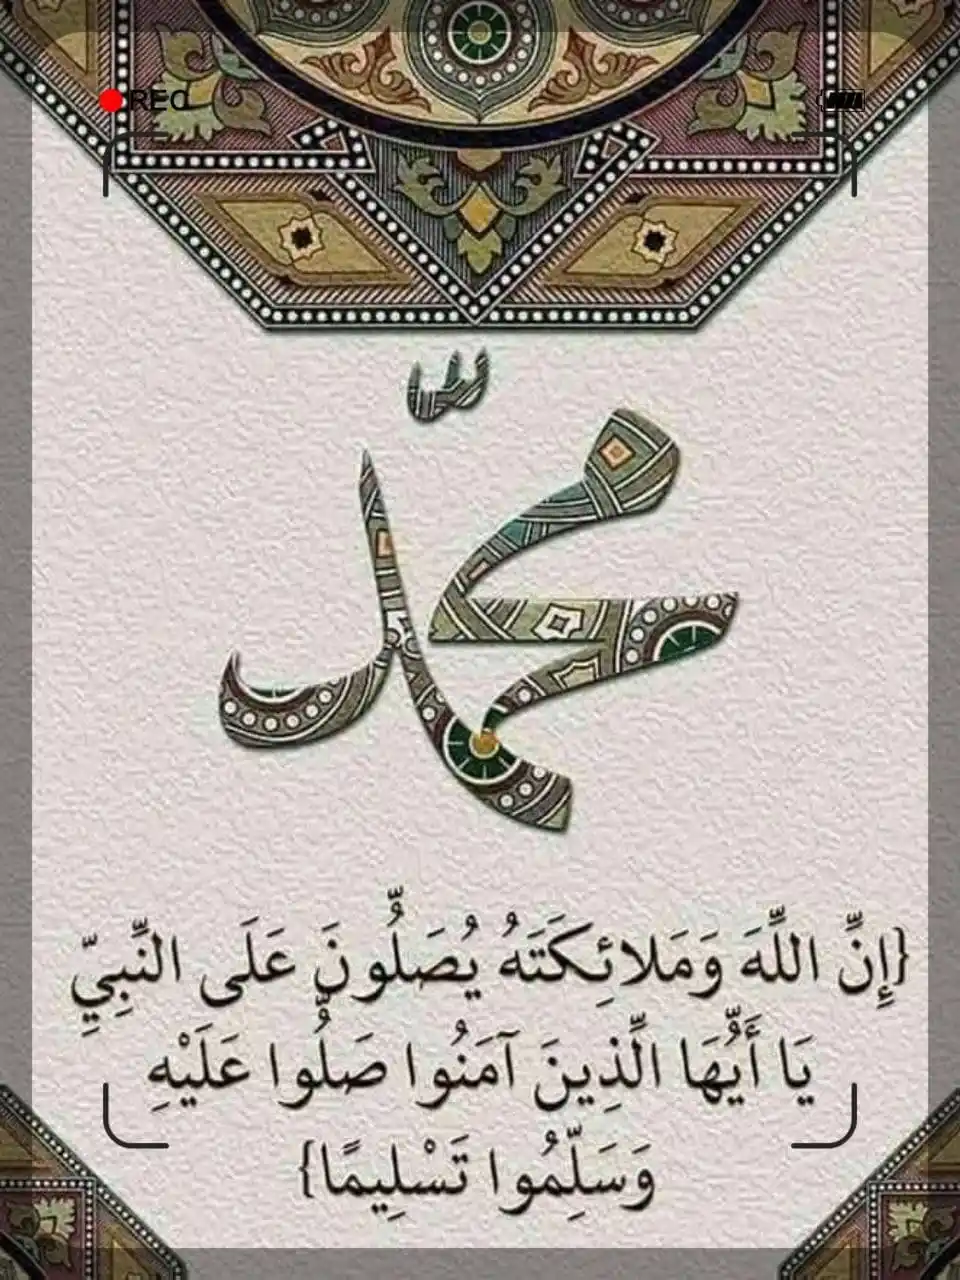 REC
محمّد
{إِنَّ اللَّهَ وَمَلائِكَتَهُ يُصَلُّونَ عَلَى النَّبِيِّ
يَا أَيُّهَا الَّذِينَ آمَنُوا صَلُّوا عَلَيْهِ
وَسَلِّمُوا تَسْلِيمًا}